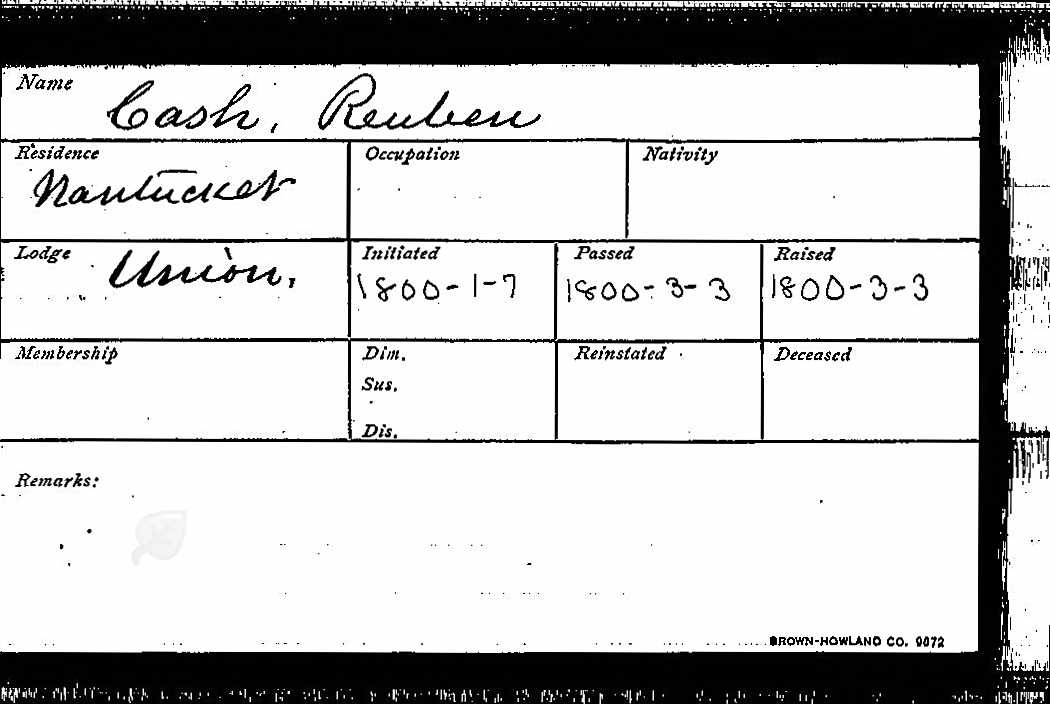 Name
Cash, Reuben
Residence Occupation Nativity
Nantucket
Lodge Union, Initiated Passed Raised
1800-1-7 1800-3-3 1800-3-3
Membership Dim. Reinstated Deceased
Sus.
Dis.
Remarks:
BROWN-HOWLAND CO. 9072